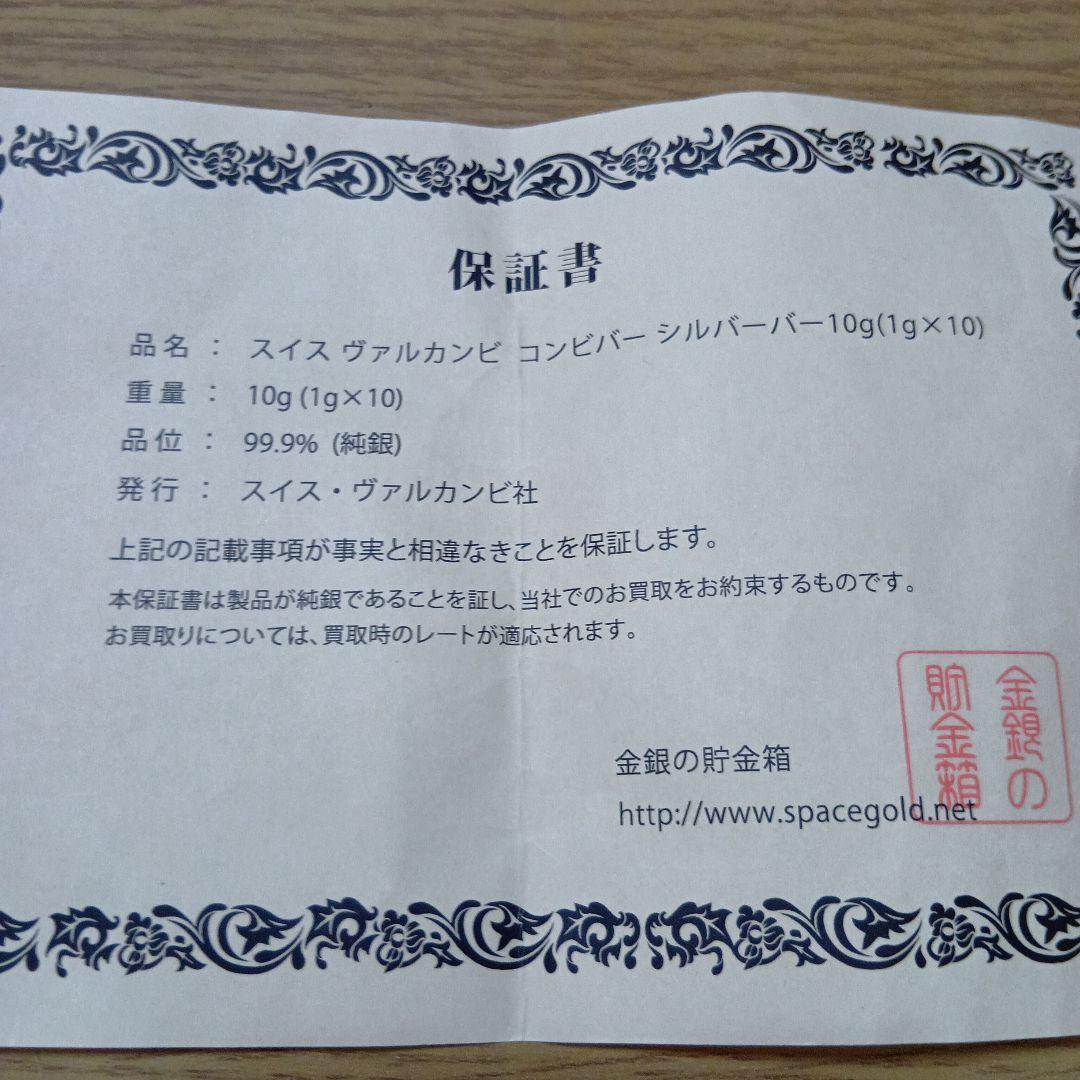 保証書
品名 ： スイス ヴァルカンビ コンビバー シルバーバー10g(1g×10)
重量 ： 10g (1g×10)
品位 ： 99.9% (純銀)
発行 ： スイス・ヴァルカンビ社
上記の記載事項が事実と相違なきことを保証します。
本保証書は製品が純銀であることを証し、当社でのお買取をお約束するものです。
お買取りについては、買取時のレートが適応されます。
金銀の貯金箱
http://www.spacegold.net
金銀の
貯金箱